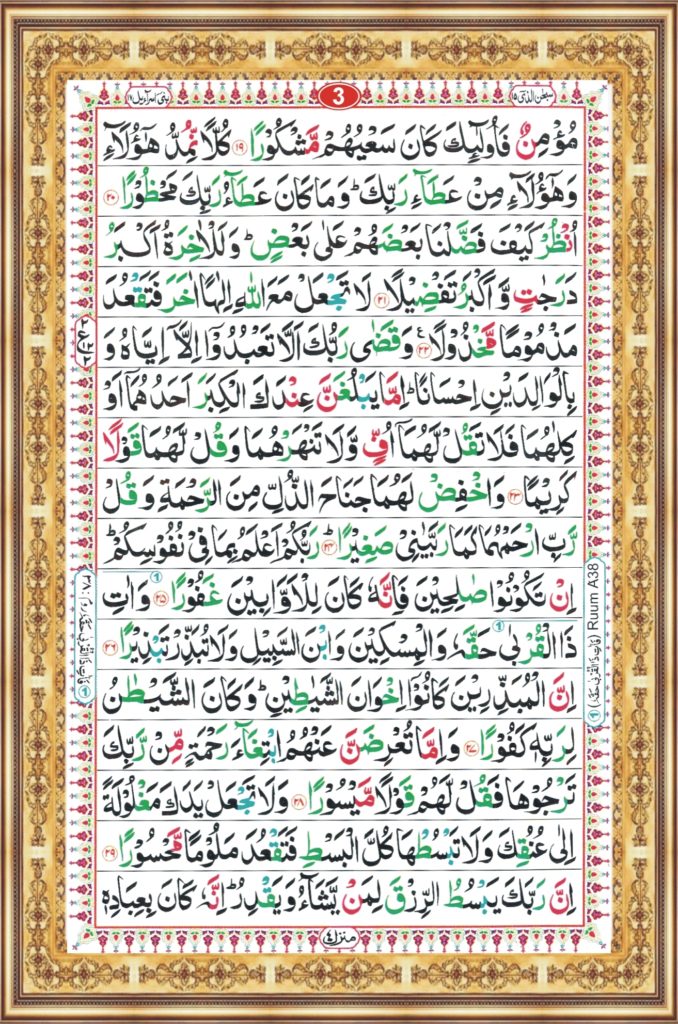 سبحٰن الذی ۱۵
3
بنی اسرآءیل ۱۷
مُؤْمِنٌ فَاُولٰٓئِكَ كَانَ سَعْیُهُمْ مَّشْكُوْرًا ۱۹ كُلًّا نُّمِدُّ هٰۤؤُلَآءِ
وَهٰۤؤُلَآءِ مِنْ عَطَآءِ رَبِّكَ ؕ وَمَا كَانَ عَطَآءُ رَبِّكَ مَحْظُوْرًا ۲۰
اُنْظُرْ كَیْفَ فَضَّلْنَا بَعْضَهُمْ عَلٰى بَعْضٍ ؕ وَلَلْاٰخِرَةُ اَكْبَرُ
دَرَجٰتٍ وَّاَكْبَرُ تَفْضِیْلًا ۲۱ لَا تَجْعَلْ مَعَ اللّٰهِ اِلٰهًا اٰخَرَ فَتَقْعُدَ
مَذْمُوْمًا مَّخْذُوْلًا ۲۲ وَقَضٰى رَبُّكَ اَلَّا تَعْبُدُوْۤا اِلَّاۤ اِیَّاهُ وَ
بِالْوَالِدَیْنِ اِحْسَانًا ؕ اِمَّا یَبْلُغَنَّ عِنْدَكَ الْكِبَرَ اَحَدُهُمَاۤ اَوْ
كِلٰهُمَا فَلَا تَقُلْ لَّهُمَاۤ اُفٍّ وَّلَا تَنْهَرْهُمَا وَقُلْ لَّهُمَا قَوْلًا
كَرِیْمًا ۲۳ وَاخْفِضْ لَهُمَا جَنَاحَ الذُّلِّ مِنَ الرَّحْمَةِ وَقُلْ
رَّبِّ ارْحَمْهُمَا كَمَا رَبَّیٰنِیْ صَغِیْرًا ؕ ۲۴ رَبُّكُمْ اَعْلَمُ بِمَا فِیْ نُفُوْسِكُمْ ؕ
اِنْ تَكُوْنُوْا صٰلِحِیْنَ فَاِنَّهٗ كَانَ لِلْاَوَّابِیْنَ غَفُوْرًا ۲۵ وَاٰتِ
ذَا الْقُرْبٰى حَقَّهٗ وَالْمِسْكِیْنَ وَابْنَ السَّبِیْلِ وَلَا تُبَذِّرْ تَبْذِیْرًا ۲۶
اِنَّ الْمُبَذِّرِیْنَ كَانُوْۤا اِخْوَانَ الشَّیٰطِیْنِ ؕ وَكَانَ الشَّیْطٰنُ
لِرَبِّهٖ كَفُوْرًا ۲۷ وَاِمَّا تُعْرِضَنَّ عَنْهُمُ ابْتِغَآءَ رَحْمَةٍ مِّنْ رَّبِّكَ
تَرْجُوْهَا فَقُلْ لَّهُمْ قَوْلًا مَّیْسُوْرًا ۲۸ وَلَا تَجْعَلْ یَدَكَ مَغْلُوْلَةً
اِلٰى عُنُقِكَ وَلَا تَبْسُطْهَا كُلَّ الْبَسْطِ فَتَقْعُدَ مَلُوْمًا مَّحْسُوْرًا ۲۹
اِنَّ رَبَّكَ یَبْسُطُ الرِّزْقَ لِمَنْ یَّشَآءُ وَیَقْدِرُ ؕ اِنَّهٗ كَانَ بِعِبَادِهٖ
منزل ٤
(فَاٰتِ ذَا الْقُرْبٰى حَقَّهٗ) Ruum A38